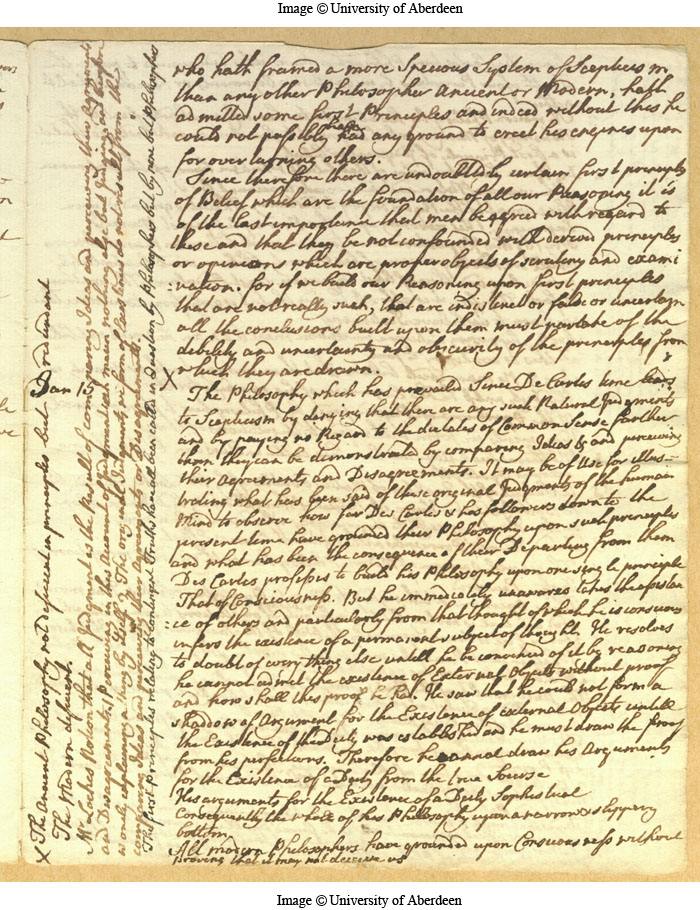 Image © University of Aberdeen
who hath framed a more Specious System of Scepticism
than any other Philosopher Ancient or Modern, hath
admitted some first Principles and indeed without this he
could not possibly have had any ground to erect his engines upon
for overturning others.
Since therefore there are undoubtedly certain first principles
of Belief which are the foundation of all our Reasoning it is
of the last importance that men be agreed with regard to
these and that they be not confounded with derived principles
or opinions which are proper objects of scrutiny and exami
:nation. for if we build our Reasoning upon first principles
that are not really such, that are indistinct or false or uncertain
all the conclusions built upon them must partake of the
debility and uncertainty and obscurity of the principles from
which they are drawn.
X
The Philosophy which has prevailed Since De Cartes time leads
to Scepticism by denying that there are any such Natural Judgments
and by paying no Regard to the dictates of Common Sense farther
than they can be demonstrated by comparing Ideas & and perceiving
their Agreements and Disagreements. It may be of Use for illus=
trating what has been said of these original Judgments of the human
Mind to observe how far Des Cartes & his followers down to the
present time have grounded their Philosophy upon such principles
and what has been the consequence of their Departing from them
Des Cartes professes to build his Philosophy upon one single principle
That of Consciousness. But he immediately unawares takes the assistan
:ce of others and particularly from that thought of which he is conscious
infers the existence of a permanent subject of thought. He resolves
to doubt of every thing else untill he be convinced of it by reasoning
he cannot admit the existence of External Objects without proof
and how shall this proof be had. He saw that he could not form a
shaddow of Argument for the Existence of external Objects untill
the Existence of the Deity was established and he must draw the proof
from his perfections. Therefore he cannot draw his Arguments
for the Existence of a Deity from the true Sourse
His arguments for the Existence of a Deity Sophistical
Consequently the whole of his Philosophy upon a narrow & slippery
bottom
All modern Philosophers have grounded upon Consciousness without
proving that it may not deceive us
Jan 15
X The Ancient Philosophy not deficient in principles but redundant
The Modern deficient.
Mr Lockes Notion that all Judgment is the Result of comparing Ideas and perceiving their Agreements
and Disagreements; Perceiving in this Account of Judgment can mean nothing else but Judging and therefore
is only explaining a thing by itself 2 The original Judgments we form of real things do not result from the
comparing Ideas and perceiving their agreements or Disagreements.
This first principles relating to contingent truths have all been called in Question by Philosophers but by none but Philosophers
Image © University of Aberdeen